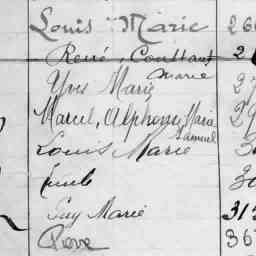 Louis Marie 26
René, Constant 2
Marie
Yves Marie 27
Marcel, Alphonse, Marie 29
Samuel
Louis Marie 3
Emile 30
Guy Marie 313
Pierre 367